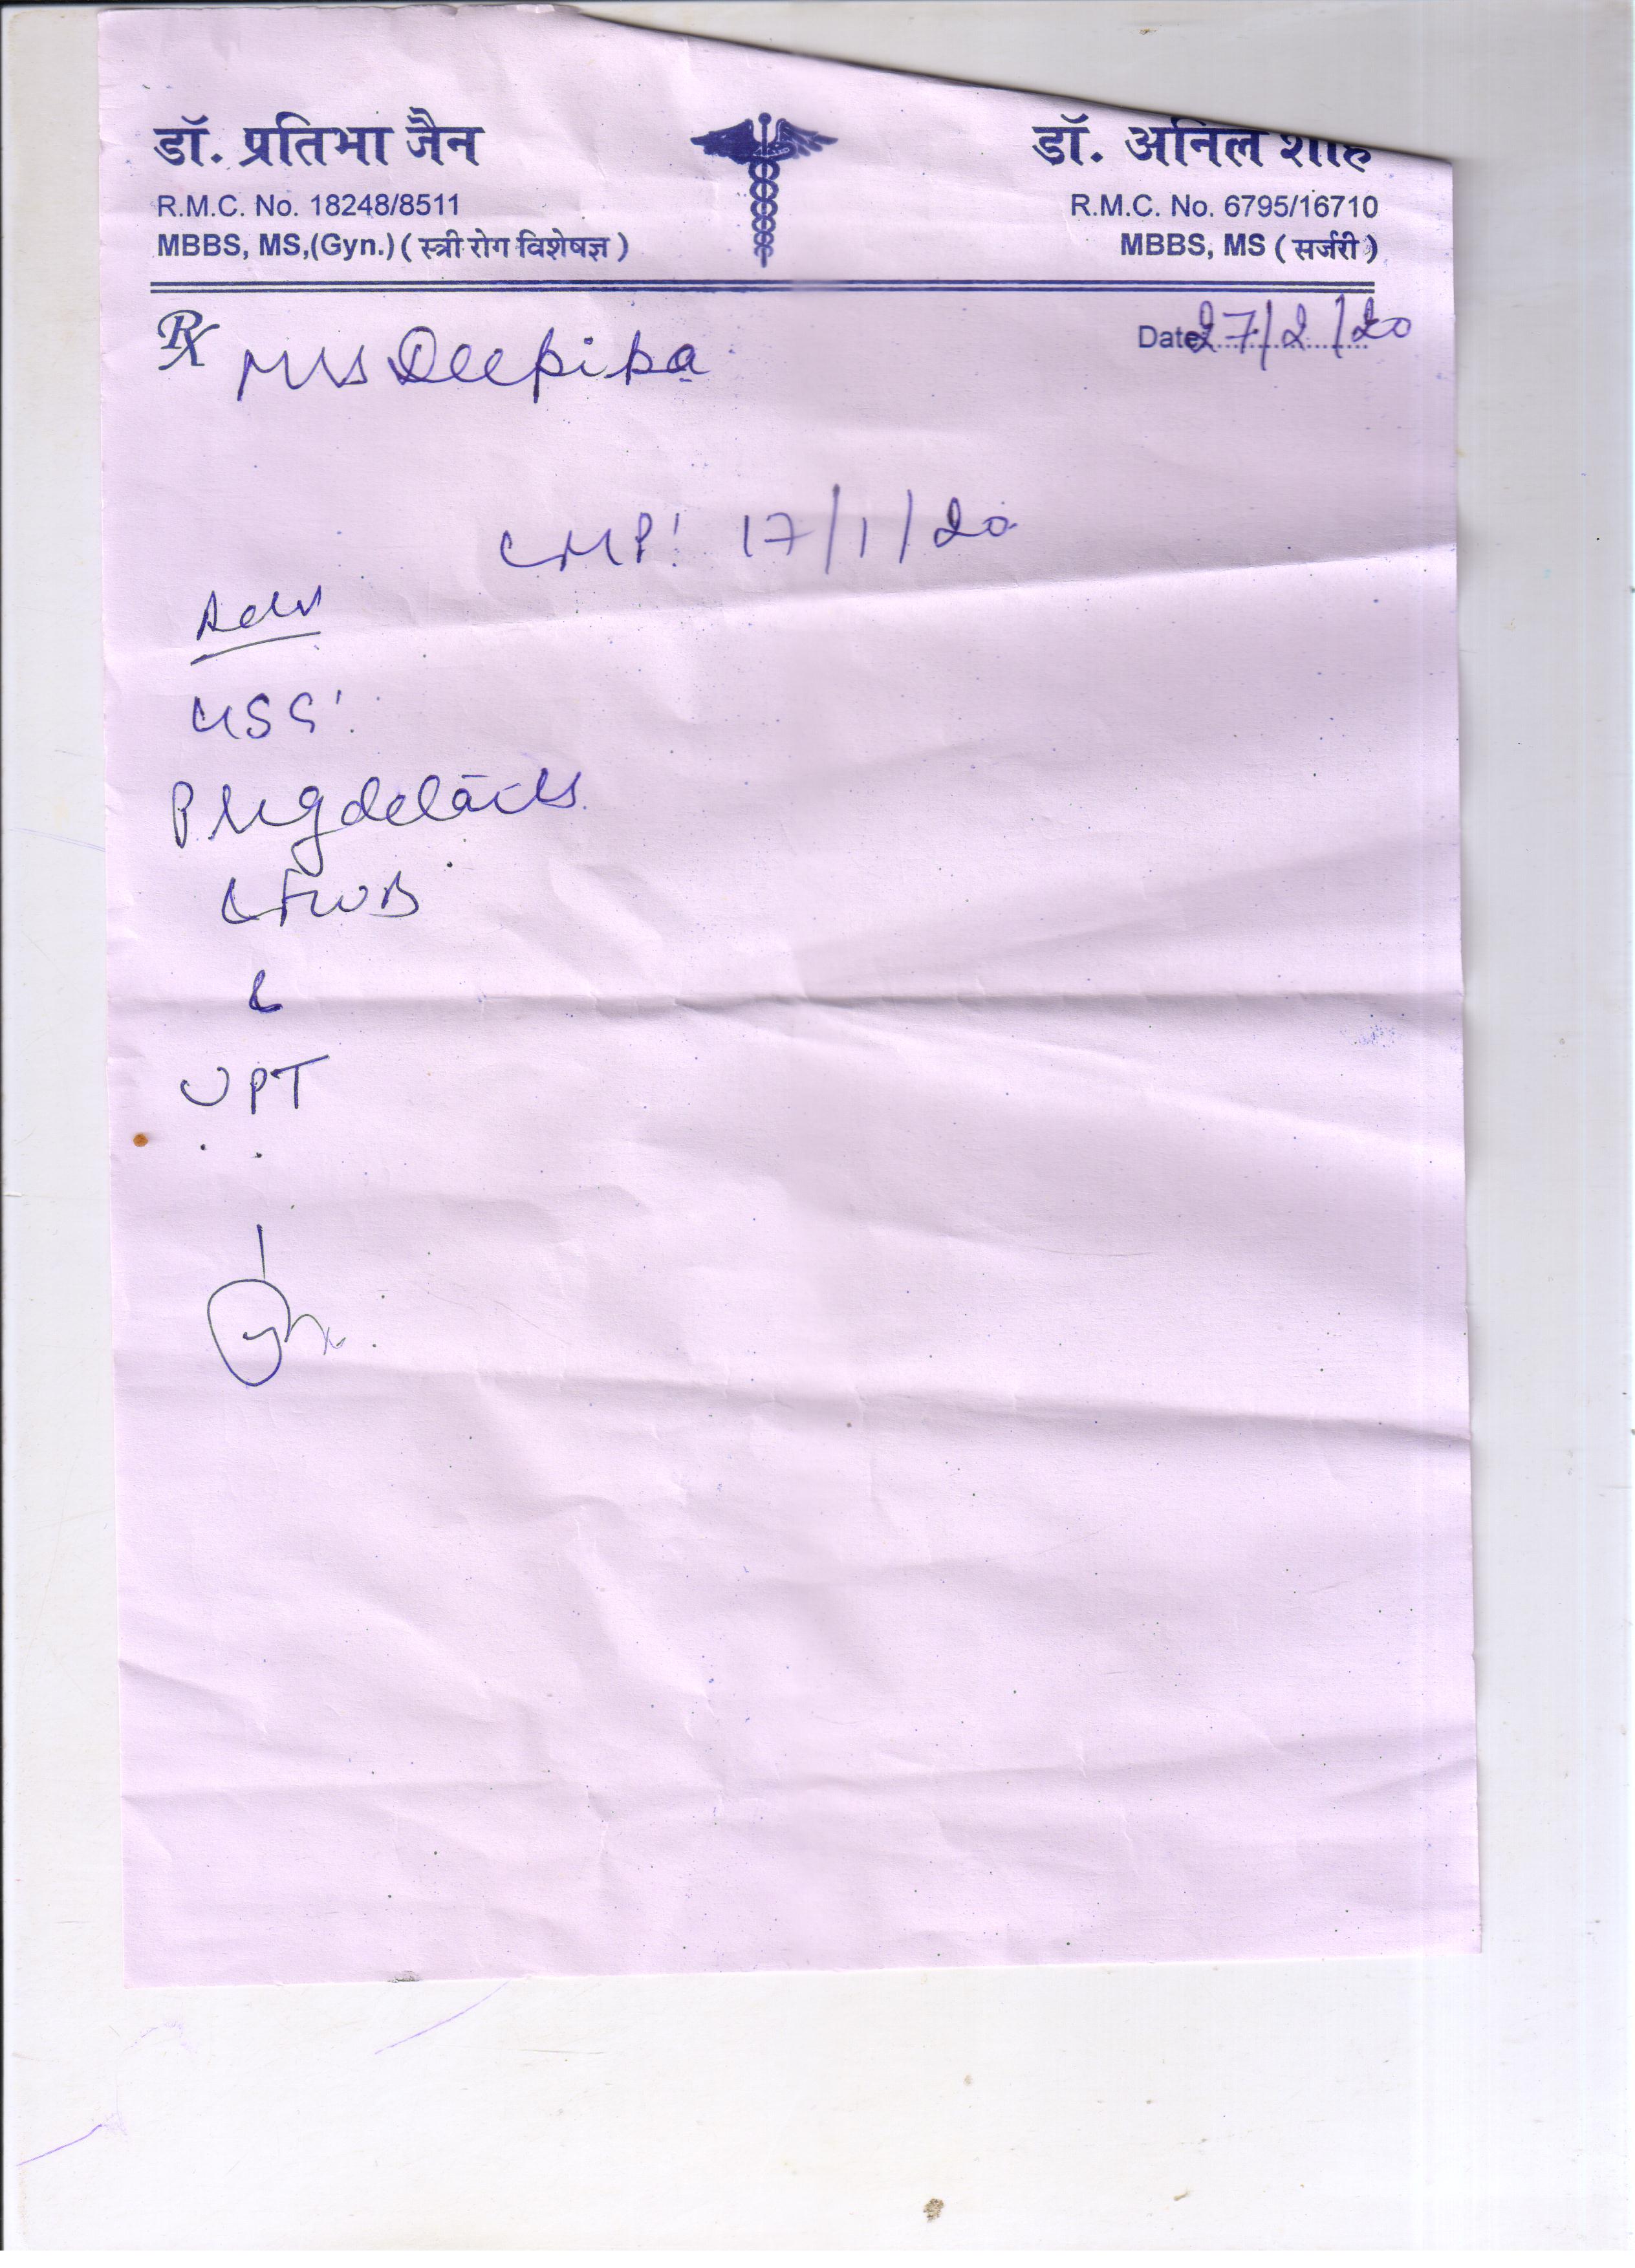 डॉ. प्रतिभा जैन
R.M.C. No. 18248/8511
MBBS, MS,(Gyn.) ( स्त्री रोग विशेषज्ञ )
डॉ. अनिल शाह
R.M.C. No. 6795/16710
MBBS, MS ( सर्जरी )
Rx Mrs Deepika
Date 27/2/20
LMP: 17/1/20
Adv
USG:
Preg details
&
UPT